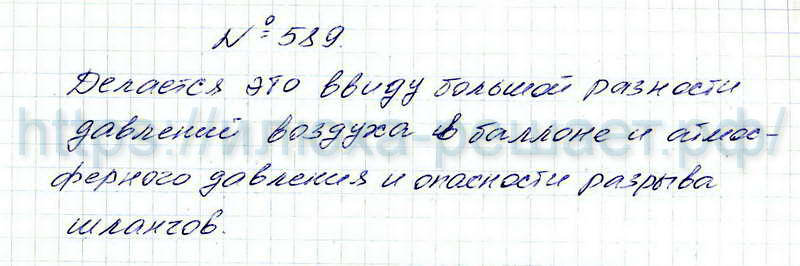 № 589.
Делается это ввиду большой разности
давлений воздуха в баллоне и атмос-
ферного давления и опасности разрыва
шлангов.